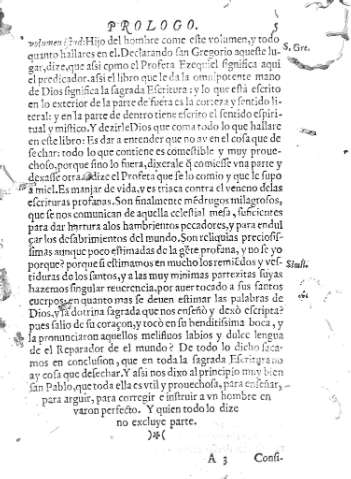 PROLOGO. 5
volumen: Hijo del hombre come este volumen, y todo
quanto hallares en el. Declarando san Gregorio aqueste lu-
S. Gre.
gar, dize, que asi como el Profeta Ezequiel significa aqui
el predicador, asi el libro que le da la omnipotente mano
de Dios significa la sagrada Escritura: y lo que está escrito
en lo exterior de la parte de fuera es la corteza y sentido li-
teral: y en la parte de dentro tiene escrito el sentido espiri-
tual y mistico. Y dezirle Dios que coma todo lo que hallare
en este libro: Es dar a entender que no ay en el cosa que de
sechar: todo lo que contiene es comestible y muy proue-
choso, porque sino lo fuera, dixerale q̃ comiesse vna parte y
dexasse otra: dize el Profeta que se lo comio y que le supo
a miel. Es manjar de vida, y es triaca contra el veneno delas
escrituras profanas. Son finalmente mẽdrugos milagrosos,
que se nos comunican de aquella celestial mesa, suficientes
para dar hartura alos hambrientos pecadores, y para endul
çar los desabrimientos del mundo. Son reliquias preciosis-
simas aunque poco estimadas de la gẽte profana, y no se yo
porque? porque si estimamos en mucho los remiẽdos y ves-
Simil.
tiduras de los santos, y a las muy minimas partezitas suyas
hazemos singular reuerencia, por auer tocado a sus santos
cuerpos, en quanto mas se deuen estimar las palabras de
Dios, y la dotrina sagrada que nos enseñò y dexò escripta?
pues salio de su coraçon, y tocò en su benditissima boca, y
la pronunciaron aquellos melifluos labios y dulce lengua
de el Reparador de el mundo? De todo lo dicho saca-
mos en conclusion, que en toda la sagrada Escritura no
ay cosa que desechar. Y asi nos dixo al principio muy bien
san Pablo, que toda ella es vtil y prouechosa, para enseñar,
para arguir, para corregir e instruir a vn hombre en
varon perfecto. Y quien todo lo dize
no excluye parte.
)*(
A 3 Consi-